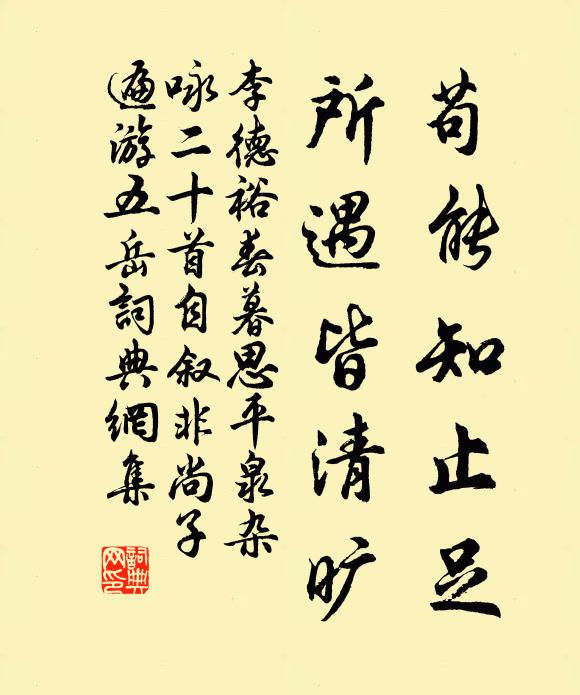 苟能知止足
所遇皆清旷
李德裕春暮思平泉杂
咏二十首自叙非尚子
遍游五岳詞典網集
詞典
网印